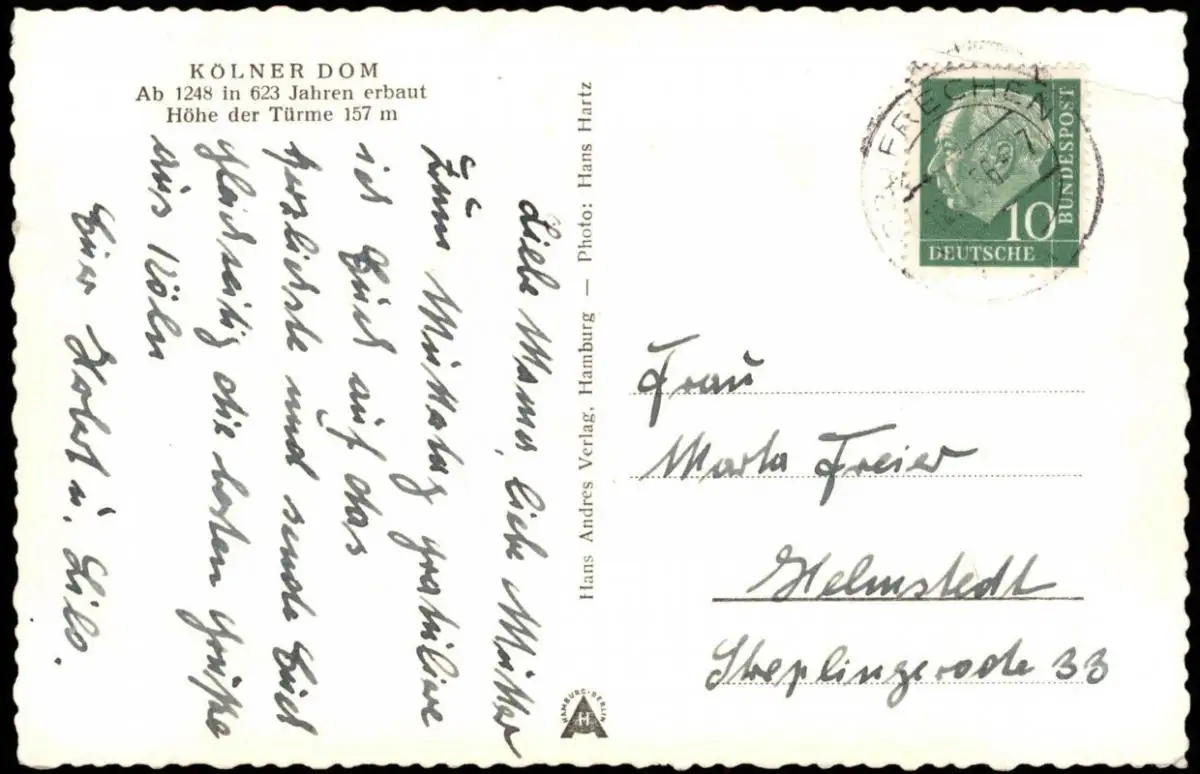 KÖLNER DOM
Ab 1248 in 623 Jahren erbaut
Höhe der Türme 157 m
Liebe Mama, liebe Mutter
Zum Muttertag gratuliere
ich Euch auf das
herzlichste und sende Euch
gleichzeitig die besten Grüße
aus Köln
Euer Robert u. Lilo.
Hans Andres Verlag, Hamburg — Photo: Hans Hartz
HAMBURG-BERLIN
H
FRECHEN
10
DEUTSCHE
BUNDESPOST
Frau
Marta Freier
Helmstedt
33